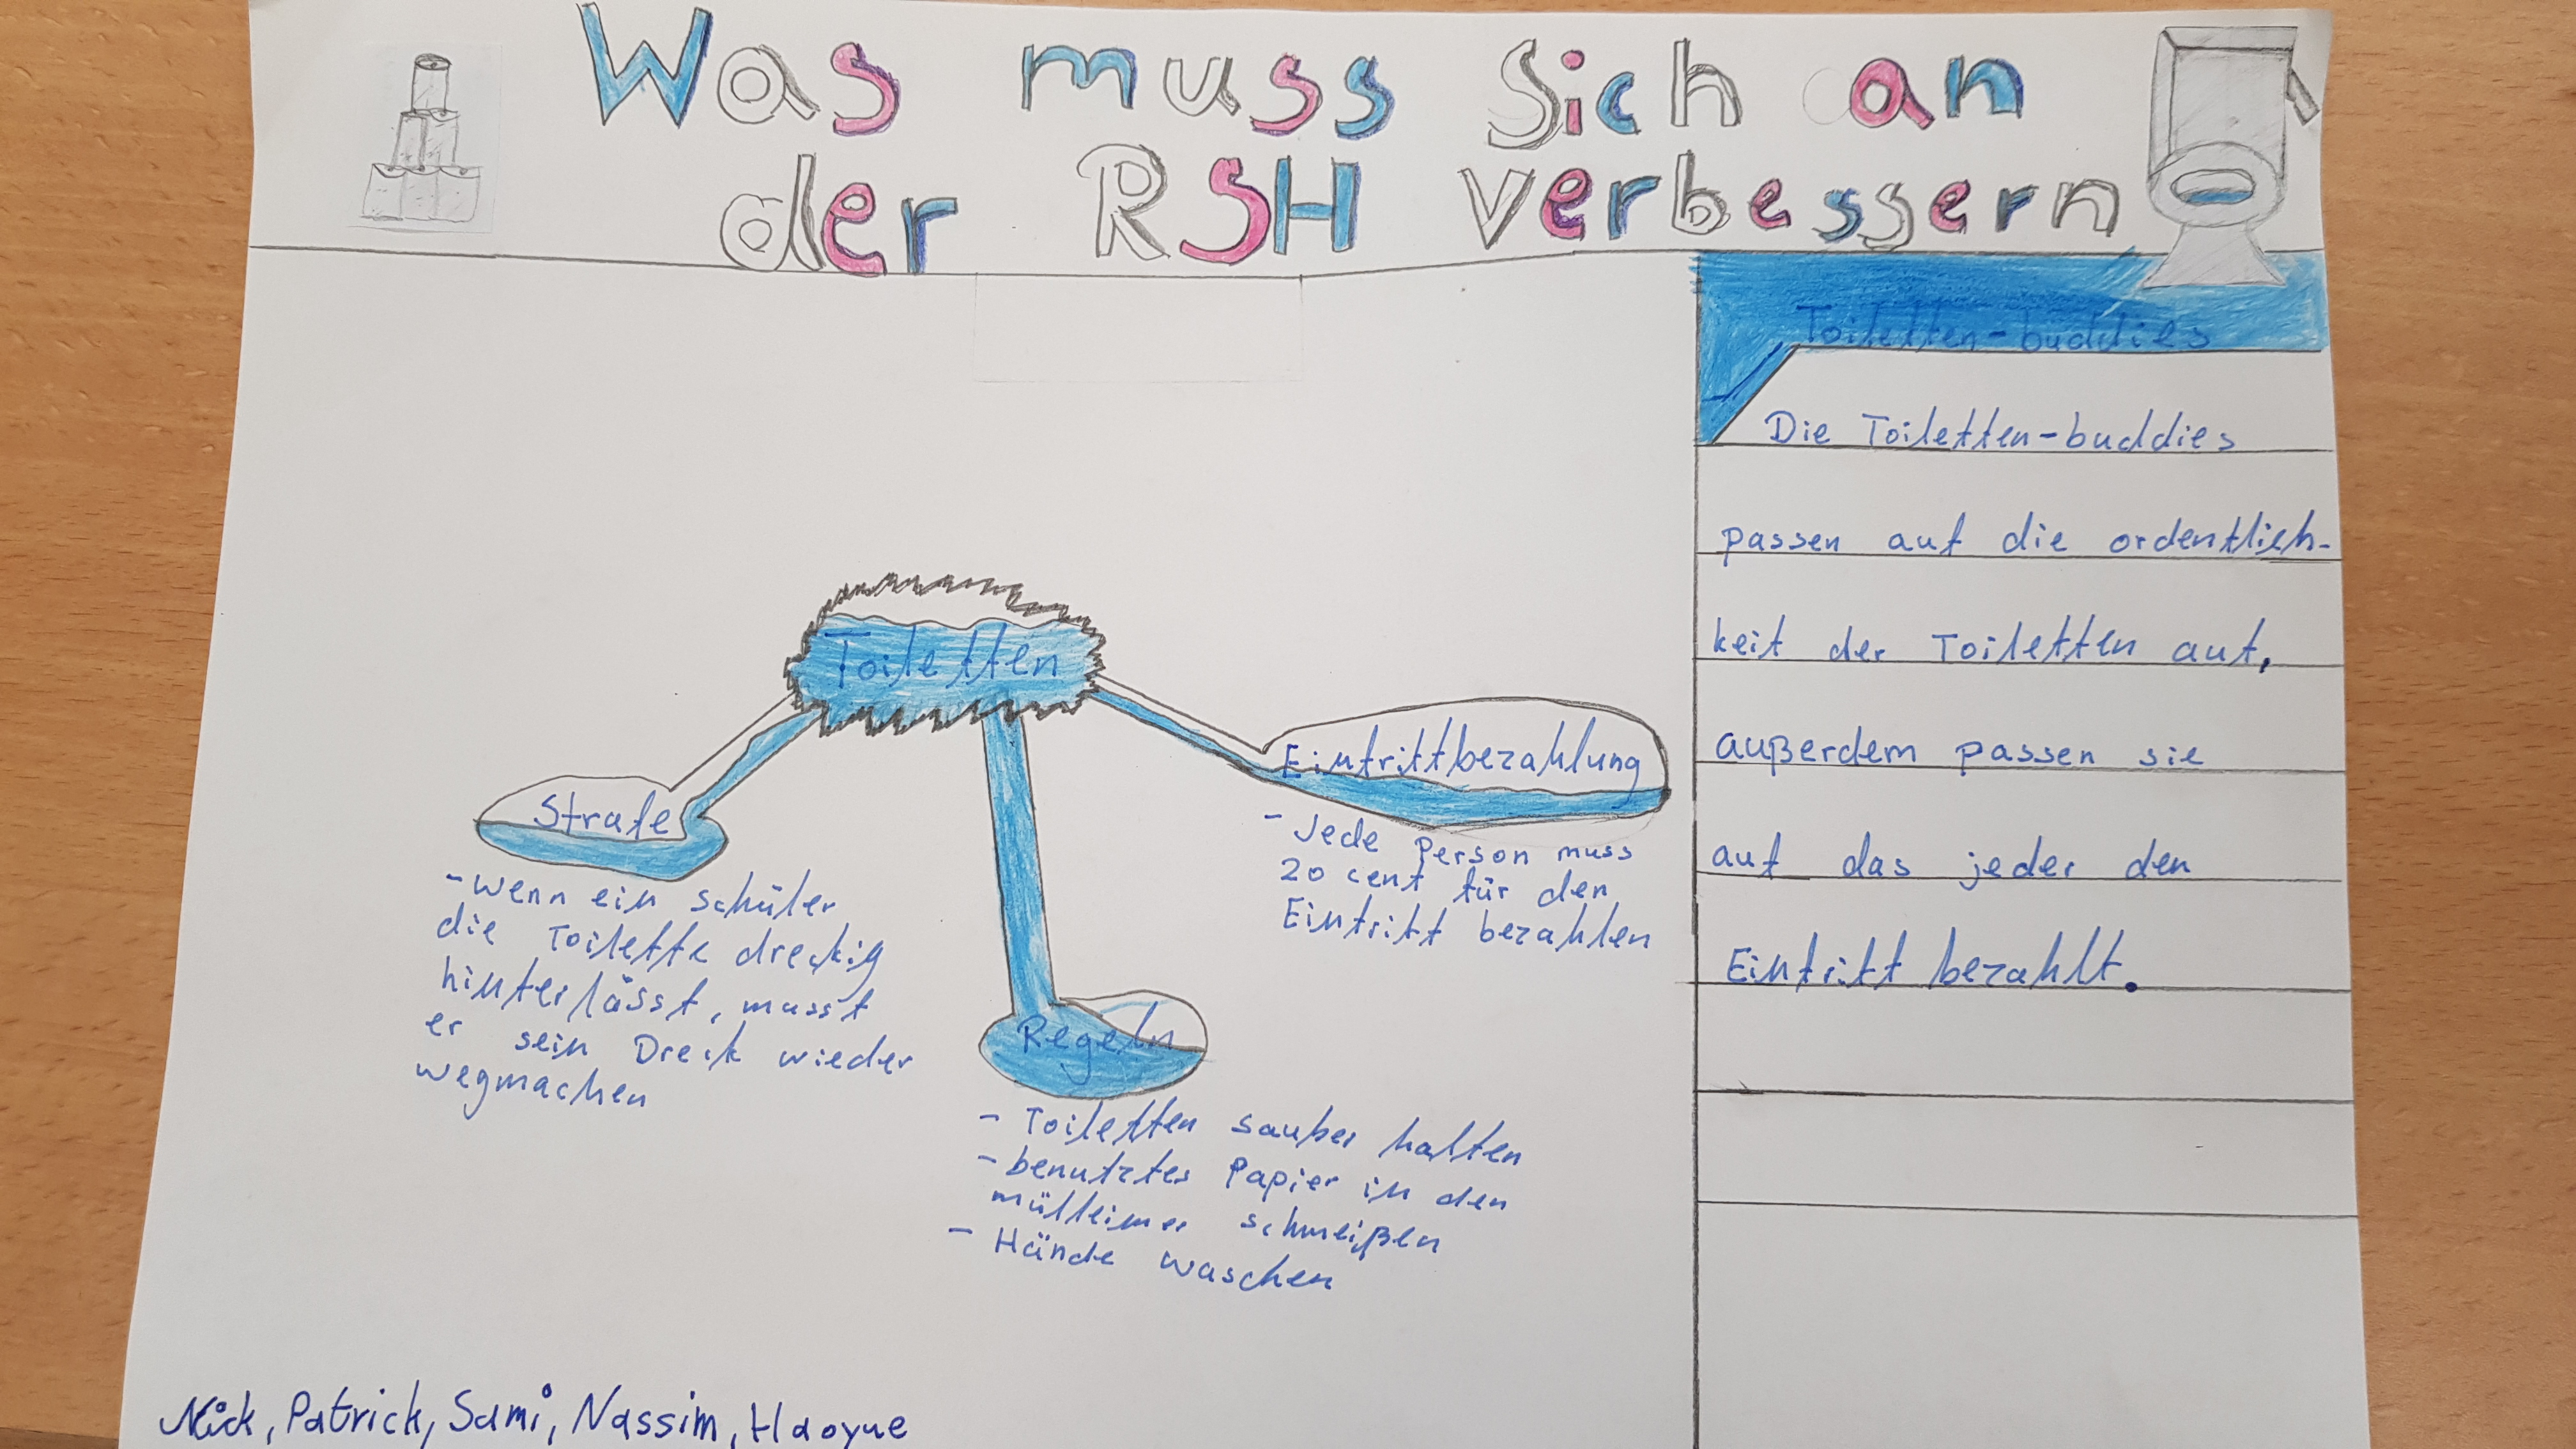 Was muss sich an
der RSH verbessern
Toiletten
Strafe
- wenn ein schüler
die Toilette dreckig
hinterlässt, musst
er sein Dreck wieder
wegmachen
Regeln
- Toiletten sauber halten
- benutztes Papier in den
mülleimer schmeißen
- Hände waschen
Eintrittbezahlung
- Jede Person muss
20 cent für den
Eintritt bezahlen
Toiletten-buddies
Die Toiletten-buddies
passen auf die ordentlich-
keit der Toiletten auf,
außerdem passen sie
auf das jeder den
Eintritt bezahlt.
Nick, Patrick, Sami, Nassim, Haoyue